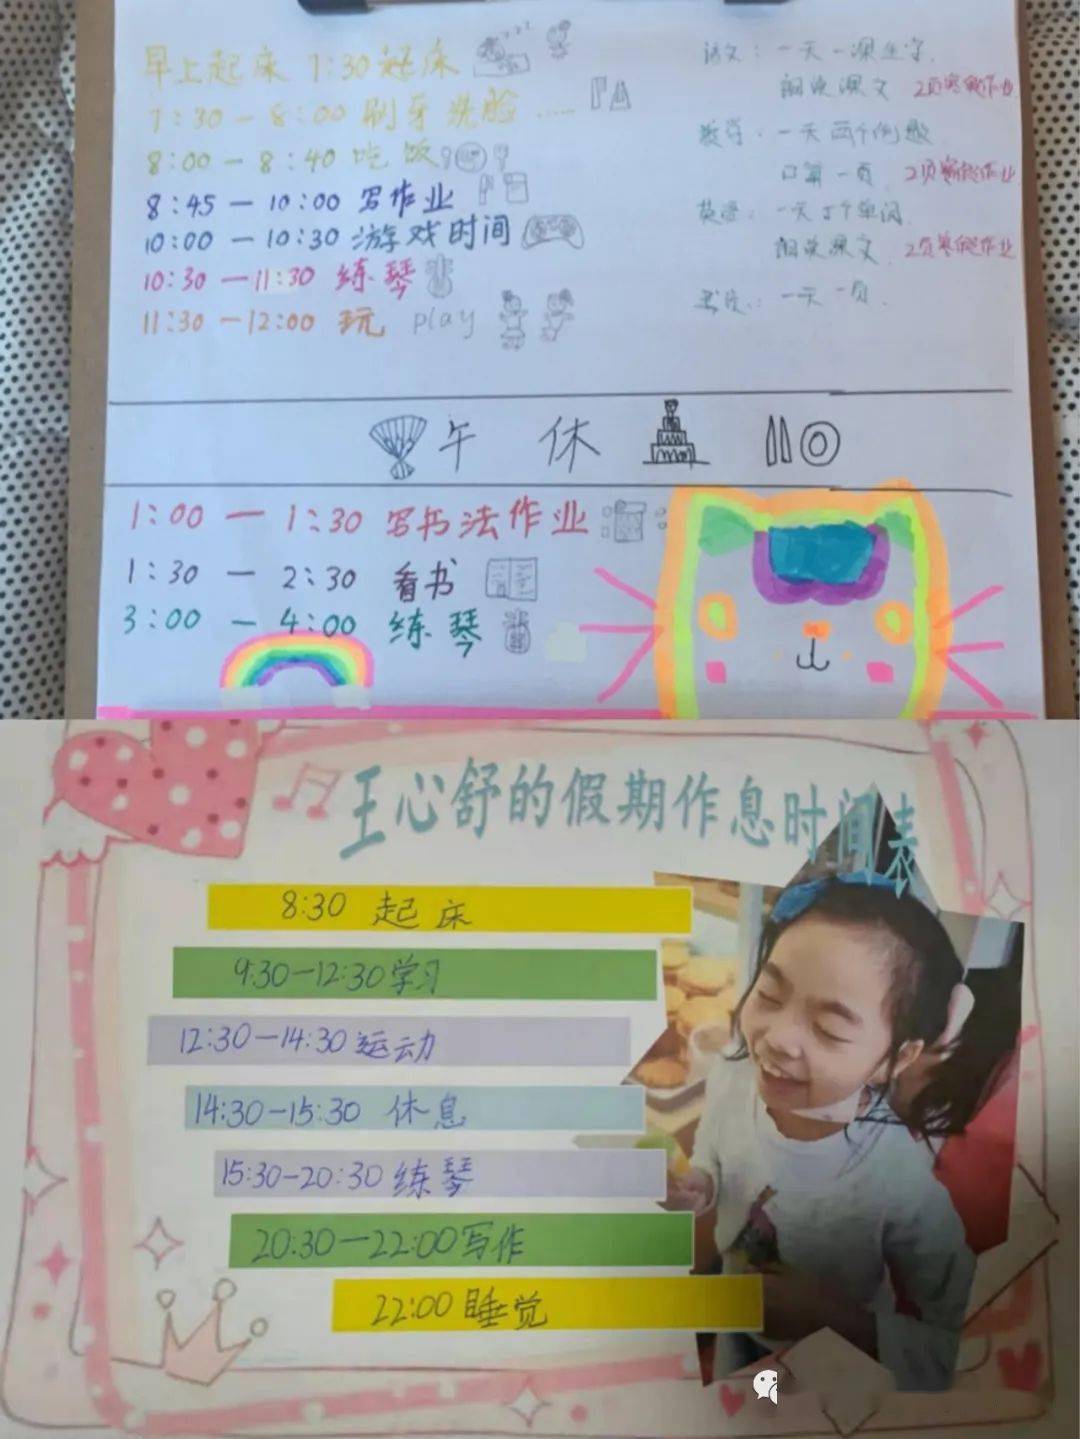 早上起床 7:30起床
7:30－8:00 刷牙洗脸......
8:00－8:40 吃饭
8:45－10:00 写作业
10:00－10:30 游戏时间
10:30－11:30 练琴
11:30－12:00 玩 play
语文：一天一课生字.
阅读课文 2页寒假作业
数学：一天两个例题
口算一页. 2页寒假作业
英语：一天5个单词.
阅读课文. 2页寒假作业
书法：一天一页.
午休
1:00－1:30 写书法作业
1:30－2:30 看书
3:00－4:00 练琴
王心舒的假期作息时间表
8:30 起床
9:30－12:30学习
12:30－14:30运动
14:30－15:30 休息
15:30－20:30练琴
20:30－22:00写作
22:00睡觉